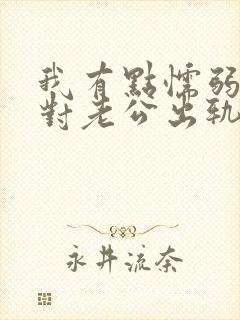 我有點懦弱
對老公出軌
永井流奈